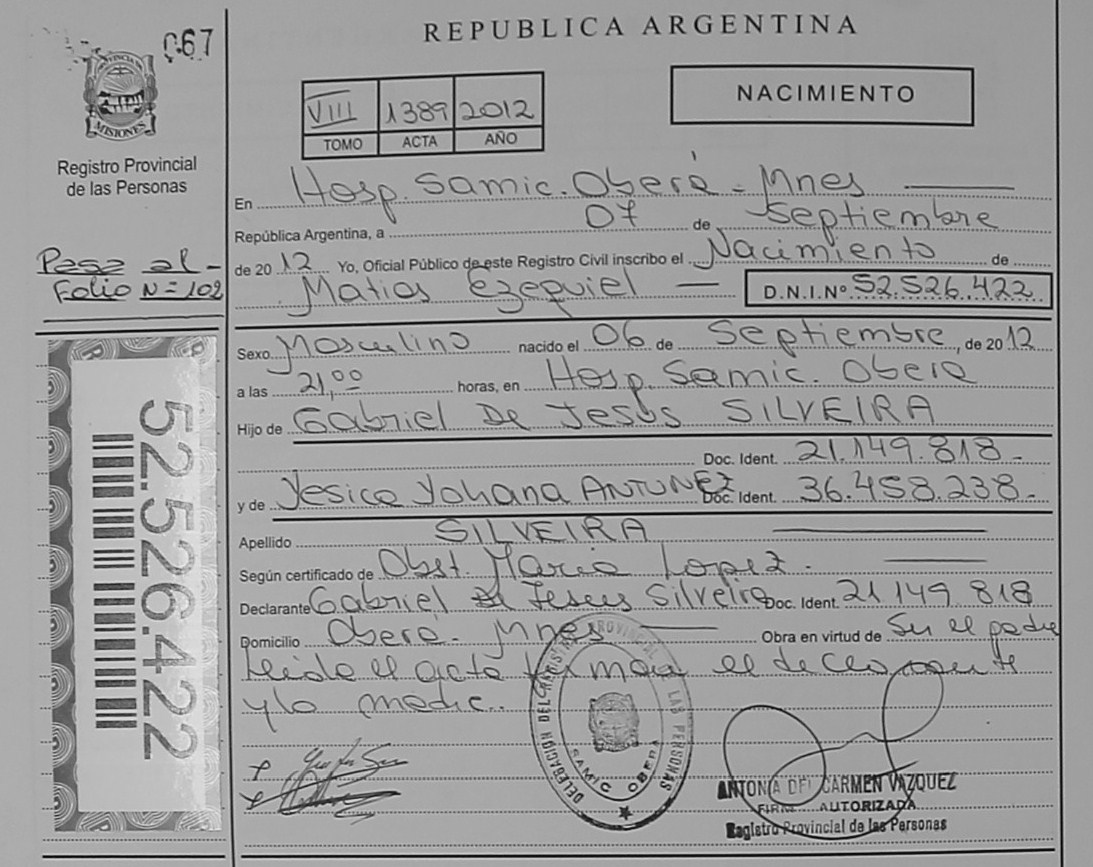 067
REPUBLICA ARGENTINA
PROVINCIA DE
MISIONES
Registro Provincial
de las Personas
VIII 1389 2012
TOMO ACTA AÑO
NACIMIENTO
En Hosp. Samic. Oberá - Mnes
República Argentina, a 07 de Septiembre
Pasa al
Folio N= 102
de 2012 Yo, Oficial Público de este Registro Civil inscribo el Nacimiento de
Matias Ezequiel D.N.I.Nº 52.526.422
Sexo Masculino nacido el 06 de Septiembre, de 2012
a las 21,00 horas, en Hosp. Samic. Obera
Hijo de Gabriel De Jesus SILVEIRA
Doc. Ident. 21.149.818-
y de Yesica Yohana ANTUNEZ Doc. Ident. 36.458.238-
Apellido SILVEIRA
Según certificado de Obst. Maria Lopez.
Declarante Gabriel De Jesus Silveira Doc. Ident. 21 149 818
Domicilio Oberá - Mnes Obra en virtud de Ser el padre
Leida el acta firman el declarante
y lo medic..
52.526.422
DELEGACION DEL REGISTRO PROVINCIAL DE LAS PERSONAS
SAMIC OBERA
ANTONIA DEL CARMEN VAZQUEZ
FIRMA AUTORIZADA
Registro Provincial de las Personas